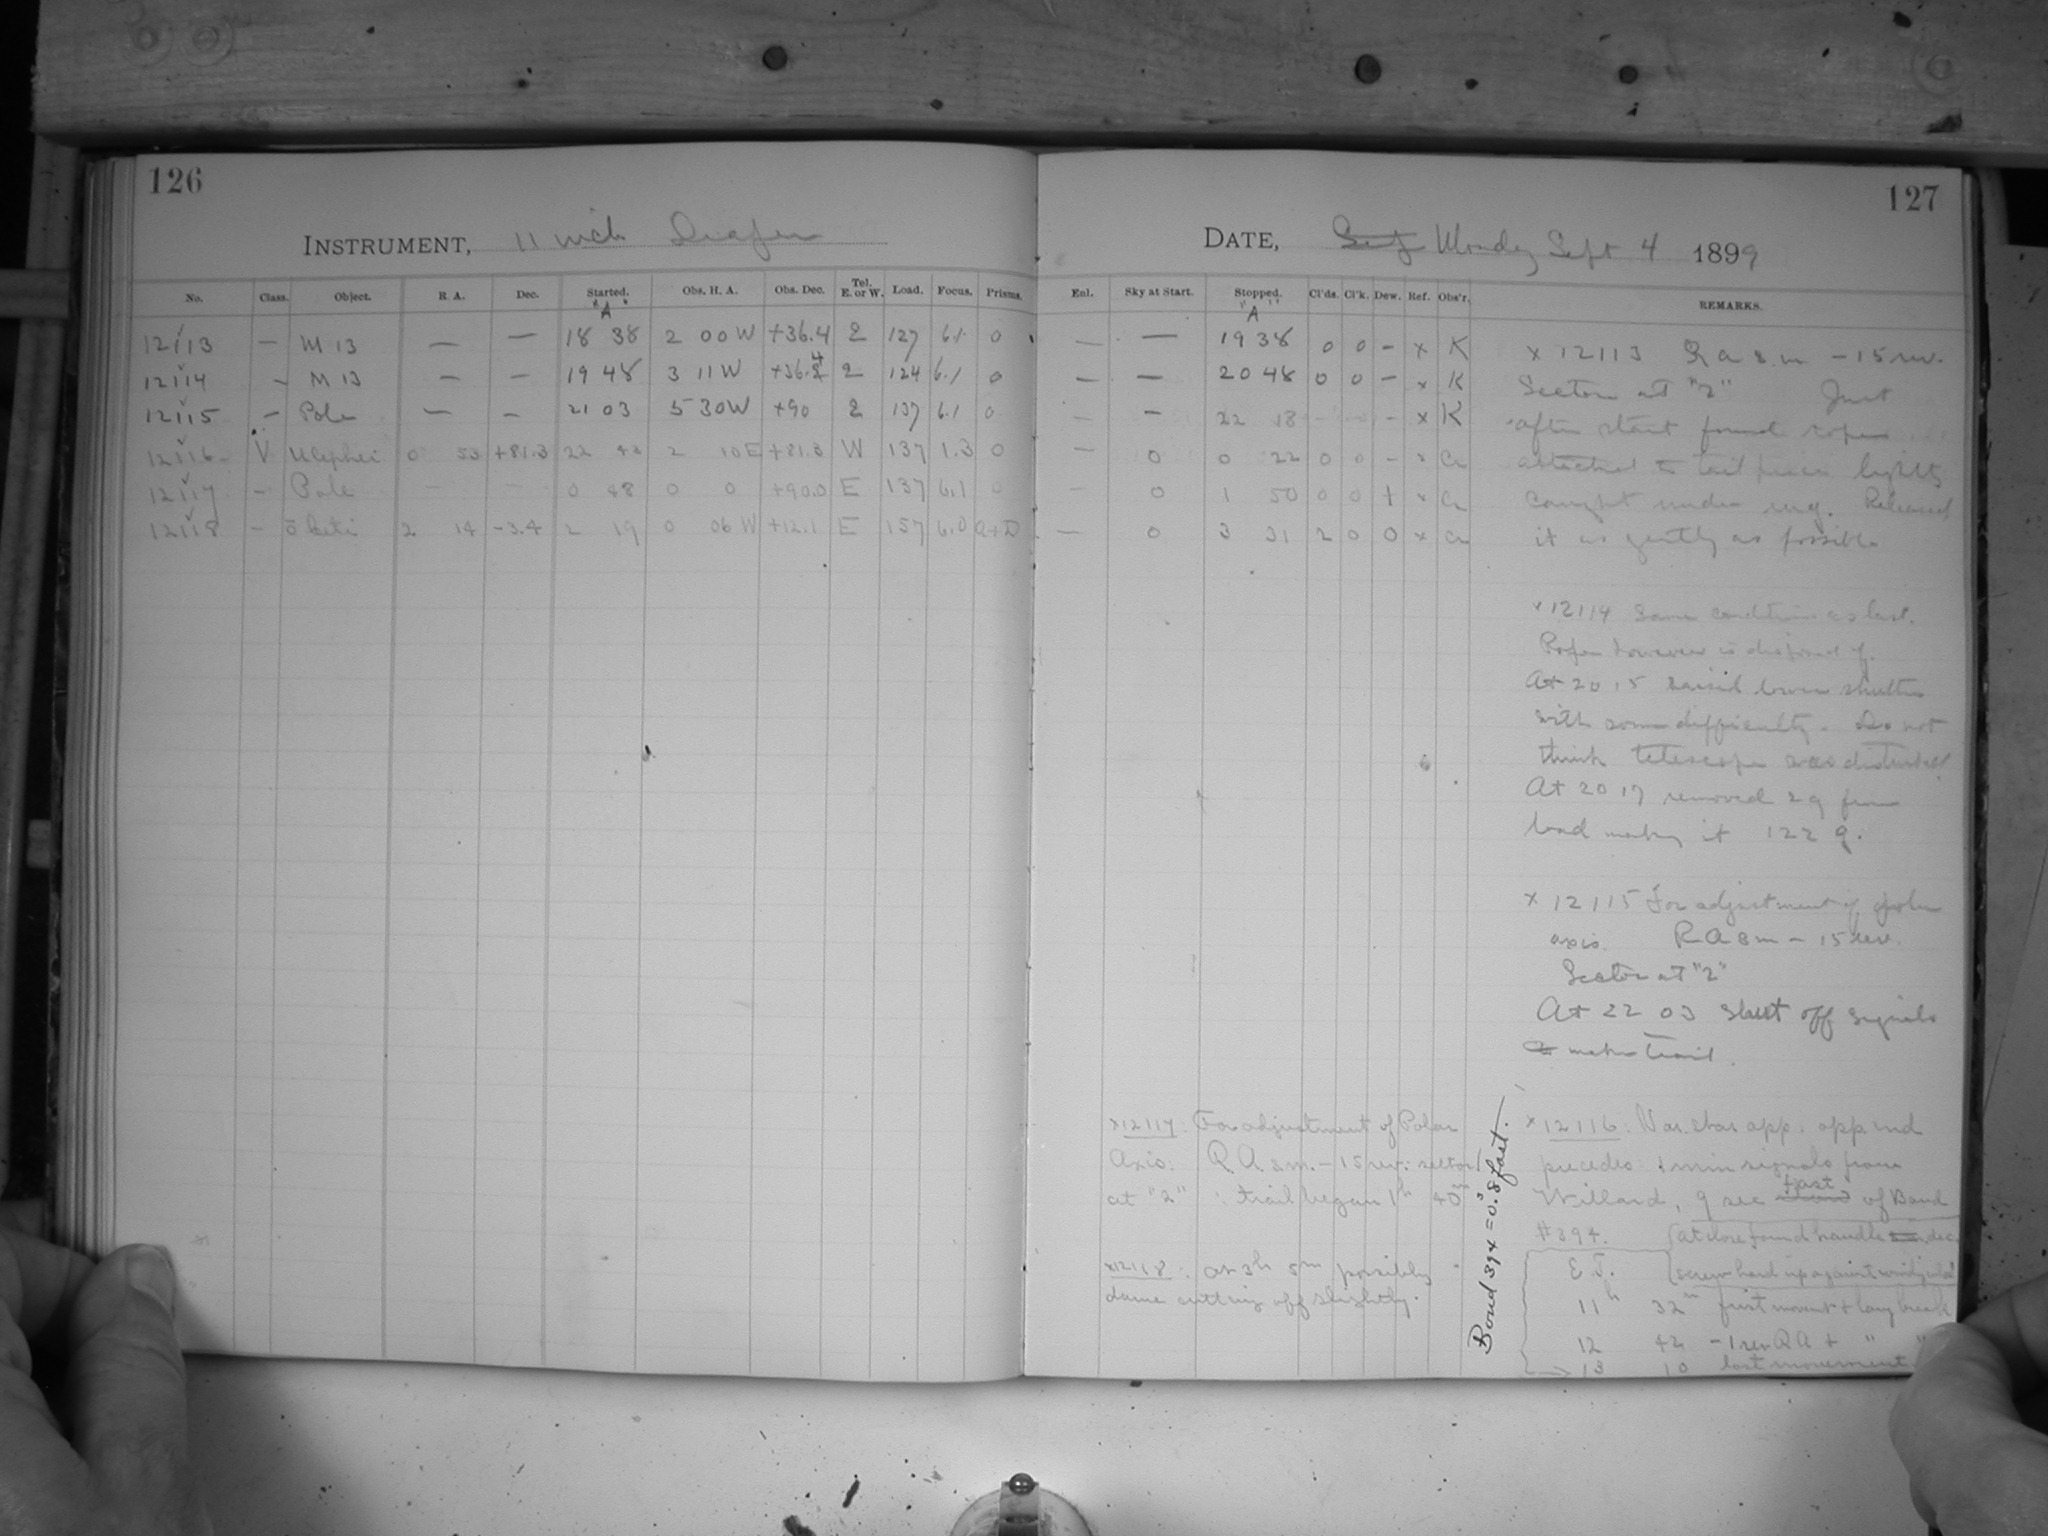 126
INSTRUMENT, 11 inch Draper
No. Class. Object. R. A. Dec. Started. Obs. H. A. Obs. Dec. Tel. E. or W. Load. Focus. Prisms.
h A m
12113 — M 13 — — 18 38 2 00 W +36.4 E 127 6.1 0
12114 — M 13 — — 19 48 3 11 W +36.4 E 124 6.1 0
12115 — Pole — — 21 03 5 30 W +90 E 137 6.1 0
12116 V U Cephei 0 53 +81.3 22 42 2 10 E +81.3 W 137 1.3 0
12117 — Pole — — 0 48 0 0 +90.0 E 137 6.1 0
12118 — o Ceti 2 14 -3.4 2 19 0 06 W +12.1 E 157 6.0 C+D
127
DATE, Monday Sept 4 1899
Enl. Sky at Start. Stopped. Cl'ds. Cl'k. Dew. Ref. Obs'r. REMARKS.
h A m
— — 19 38 0 0 – x K
— — 20 48 0 0 – x K
— — 22 18 – – – x K
— 0 0 22 0 0 – x
— 0 1 50 0 0 + x
— 0 3 31 2 0 0 x
x 12113 R A 8 m – 15 rev.
Sector at "2" Just
after start found rope
attached to tail piece lights
caught under rug. Released
it as gently as possible
x 12114 Same conditions as last.
Rope however is disposed of.
At 20 15 raised lower shutter
with some difficulty – Do not
think telescope was disturbed.
At 20 17 removed 2 g from
load making it 122 g.
x 12115 For adjustment of polar
axis. R A 8 m – 15 rev.
Sector at "2"
At 22 03 shut off signals
to make trail.
x 12116: Var. star app. opp. end
precedes: 1 min signals from
Willard, 9 sec fast of Bond
#394. (At close found handle dec.
E.T. screw hard up against
11h 32m first movemt + long break
12 42 –1 rev RA + " "
13 10 last movement
x12117: For adjustment of Polar
Axis: R A 8 m. – 15 rev: sector
at "2" : trail began 1h 40m
x12118: at 3h 5m possibly
dome cutting off slightly.
Bond 394 = 0s.8 fast.